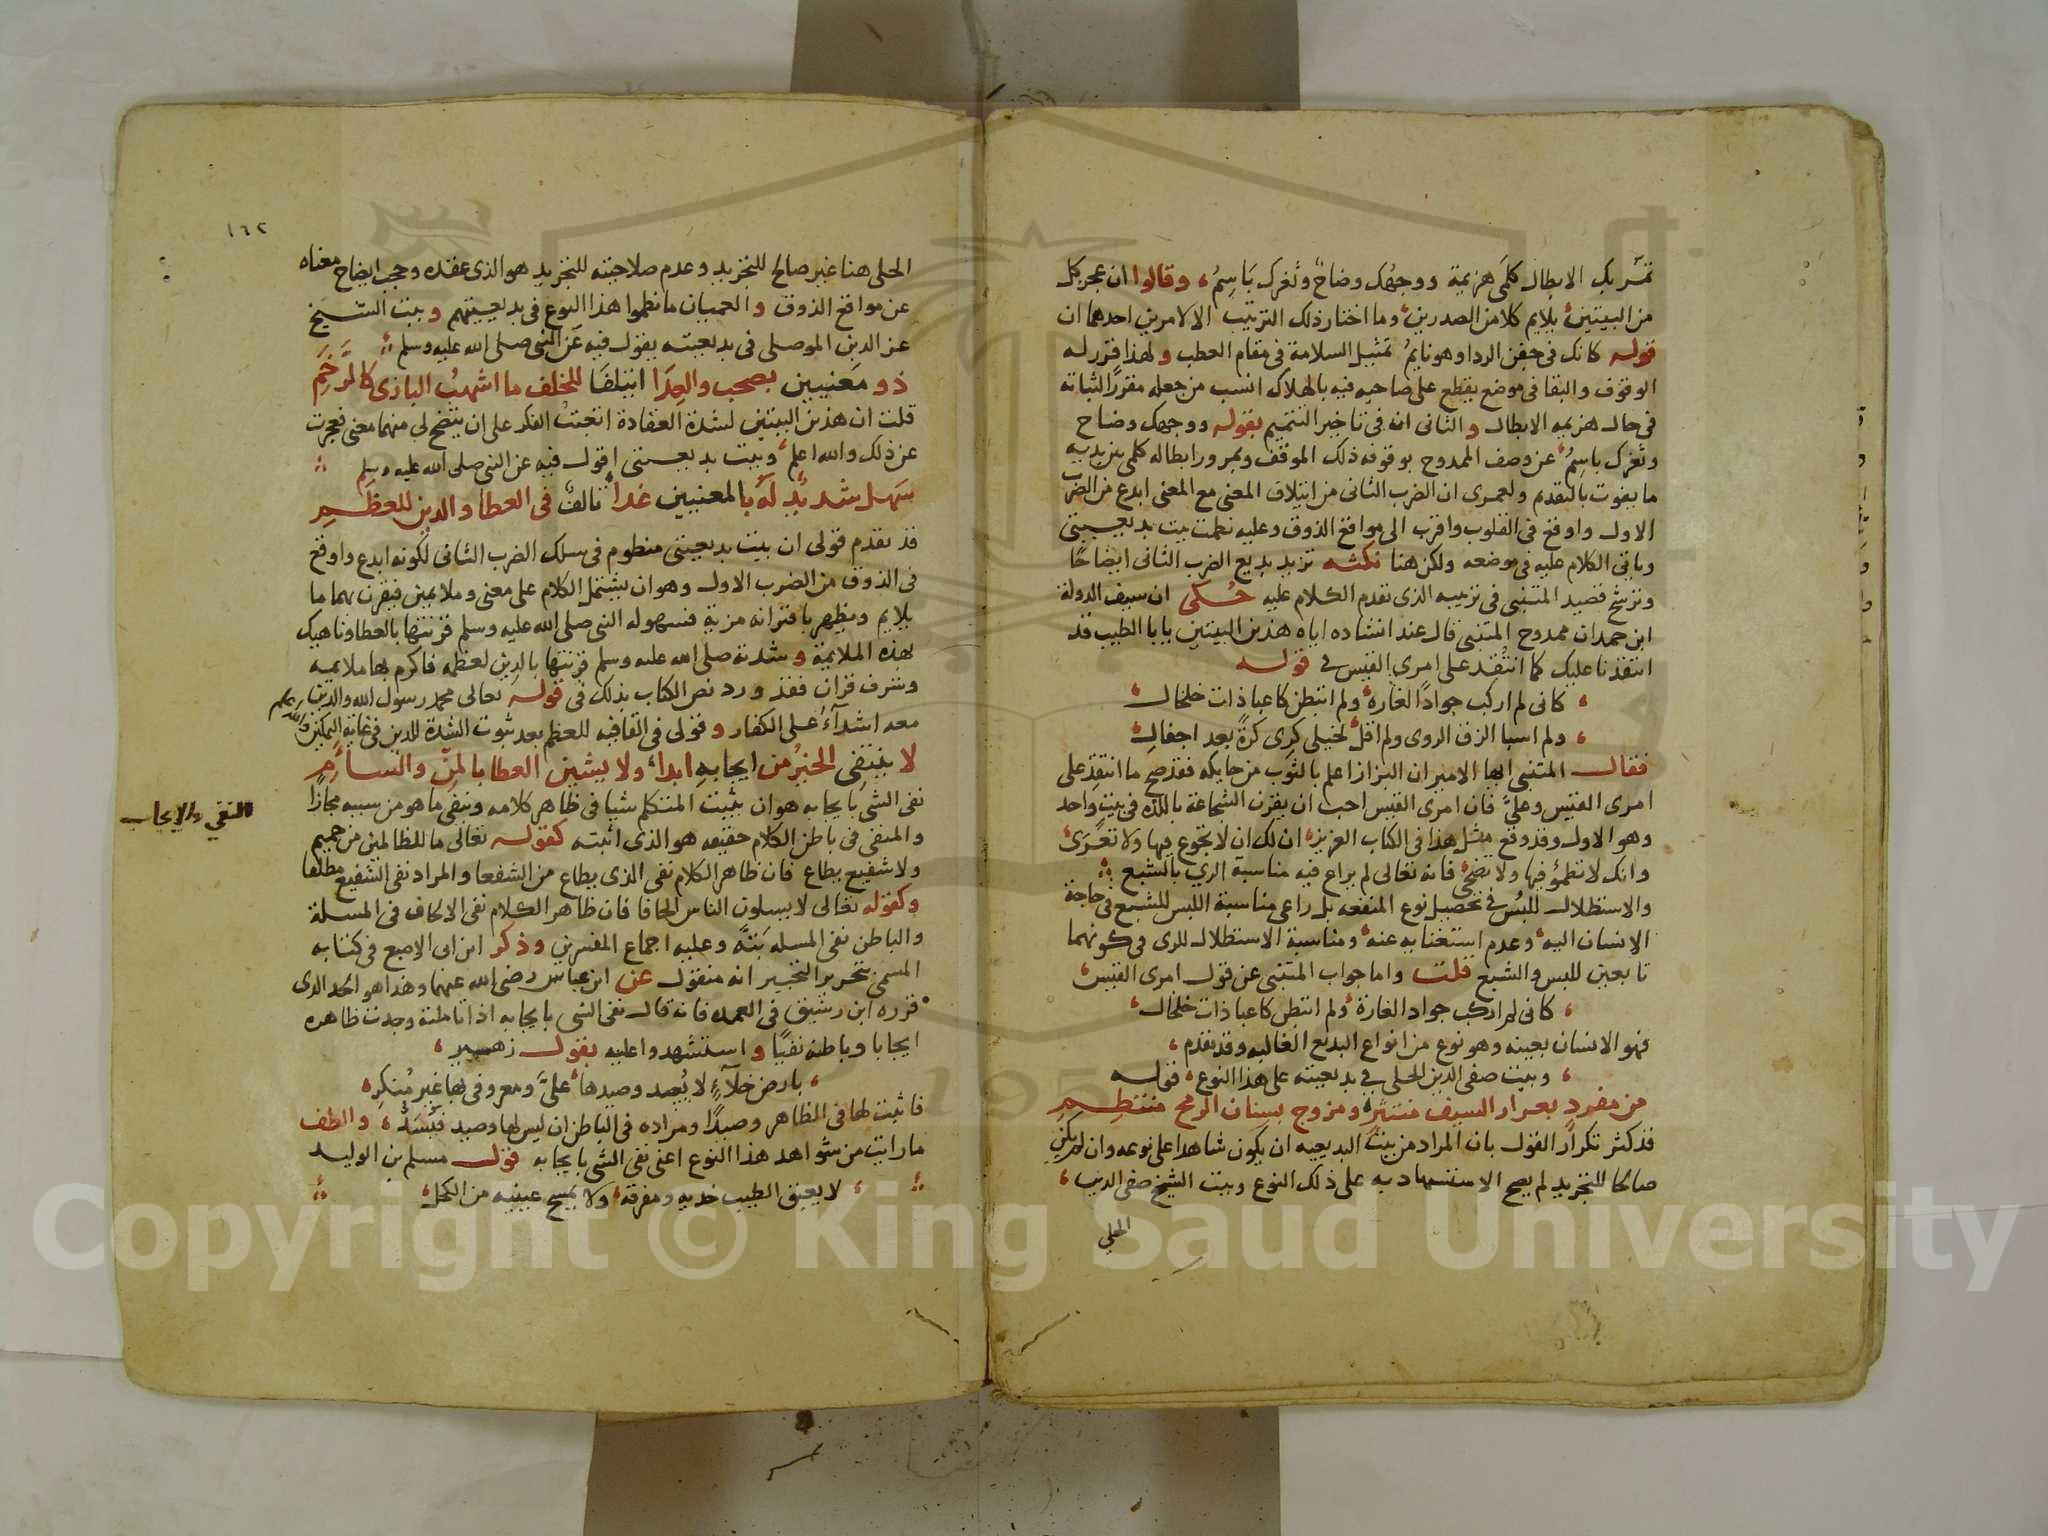 تمر بك الابطال كلمى هزيمة ووجهك وضاح وثغرك باسم، وقالوا ان عجز كل
من البيتين يلايم كلا من الصدرين وما اختار ذلك الترتيب الا لامرين احدهما ان
قوله كانك في جفن الردا وهو نايم تمثيل السلامة في مقام العطب ولهذا قرر له
الوقوف والبقا في موضع يقطع على صاحبه فيه بالهلاك انسب من جعله مقررا لثباته
في حال هزيمه الابطال والثاني ان في تاخير التتميم بقوله ووجهك وضاح
وثغرك باسم عن وصف الممدوح بوقوفه ذلك الموقف وبمرور ابطاله كلمى بين يديه
ما يفوت بالتقديم ولعمري ان الضرب الثاني من ايتلاف المعنى مع المعنى ابدع من الضرب
الاول واوقع في القلوب واقرب الى مواقع الذوق وعليه نظمت بيت بديعيتي
وياتي الكلام عليه في موضعه ولكن هنا نكثه تزيد بديع الضرب الثاني ايضاحا
وترشح قصيد المتنبي في ترتيبه الذي تقدم الكلام عليه حكى ان سيف الدولة
ابن حمدان ممدوح المتنبي قال عند انشاده اياه هذين البيتين يابا الطيب قد
انتقدنا عليك كما انتقد على امرى القيس في قوله
كانى لم اركب جوادا لغارة ولم اتبطن كاعبا ذات خلخال
ولم اسبا الزق الروى ولم اقل لخيلى كرى كرة بعد اجفال
فقال المتنبي ايها الامير ان البزاز اعلم بالثوب من حايكه فقد صح ما انتقد على
امرى القيس وعلى فان امرى القيس احب ان يقرن الشجاعة باللذه في بيت واحد
وهو الاول وقد وقع مثل هذا في الكتاب العزيز ان لك ان لا تجوع فيها ولا تعرى
وانك لا تظمؤ فيها ولا تضحى فانه تعالى لم يراع فيه مناسبة الري بالشبع
والاستظلال للبس في تحصيل نوع المنفعه بل راعى مناسبة اللبس للشبع في حاجة
الانسان اليه وعدم استغنايه عنه ومناسبة الاستظلال للرى في كونهما
تابعين للبس والشبع قلت واما جواب المتنبي عن قول امرى القيس
كانى لم اركب جواد الغارة ولم اتبطن كاعبا ذات خلخال
فهو الانسان بعينه وهو نوع من انواع البديع الغاليه وقد تقدم
وبيت صفى الدين الحلى في بديعيته على هذا النوع قوله
من مفرد بغرار السيف منتثر ومزوج بسنان الرمح منتظم
قد كثر تكرار القول بان المراد من بيت البديعيه ان يكون شاهدا على نوعه وان لم يكن
صالحا للتجريد لم يصح الاستشهاد به على ذلك النوع وبيت الشيخ صفى الدين
الحلي
١٦٢
الحلى هنا غير صالح للتجريد وعدم صلاحيته للتجريد هو الذى عقده وحجب ايضاح معناه
عن مواقع الذوق والعميان ما نظموا هذا النوع في بديعيتهم وبيت الشيخ
عز الدين الموصلى في بديعيته يقول فيه عن النبى صلى الله عليه وسلم
ذو معنيين بصحب والعدا ايتلفا للخلف ما اشهب البازى كالرخم
قلت ان هذين البيتين لشدة العقادة اتعبت الفكر على ان يتضح لي منهما معنى فعجزت
عن ذلك والله اعلم وبيت بديعيتى اقول فيه عن النبى صلى الله عليه وسلم
سهل شديد له بالمعنيين غدا تالف في العطا والدين للعظم
قد تقدم قولى ان بيت بديعيتى منظوم في سلك الضرب الثانى لكونه ابدع واوقع
في الذوق من الضرب الاول وهو ان يشتمل الكلام على معنى وملايمين فيقرن بهما ما
يلايم ويظهر باقترانه مزية فسهوله النبى صلى الله عليه وسلم قرنتها بالعطا وناهيك
بهذه الملايمة وشدته صلى الله عليه وسلم قرنتها بالدين لعظمه فاكرم بها ملايمه
وشرف قران فقد ورد نص الكتاب بذلك في قوله تعالى محمد رسول الله والذين
معه اشدآء على الكفار وقولى في القافيه للعظم بعد ثبوت الشدة للدين في غاية التمكين والله اعلم
لا ينتفى الخير من ايجابه ابدا ولا يشين العطا بالمن والسام
النفي والايجاب
نفى الشى بايجابه هو ان يثبت المتكلم شيا في ظاهر كلامه وينفى ما هو من سببه مجازا
والمنفى في باطن الكلام حقيقه هو الذى اثبته كقوله تعالى ما للظالمين من حميم
ولا شفيع يطاع فان ظاهر الكلام نفى الذى يطاع من الشفعا والمراد نفى الشفيع مطلقا
وكقوله تعالى لا يسلون الناس الحافا فان ظاهر الكلام نفى الالحاف في المسلة
والباطن نفى المسله بتة وعليه اجماع المفسرين وذكر ابن ابى الاصبع في كتابه
المسمى بتحرير التحبير انه منقول عن ابن عباس رضى الله عنهما وهذا هو الحد الذى
قرره ابن رشيق في العمده فانه قال نفى الشى بايجابه اذا تاملته وجدت ظاهره
ايجابا وباطنه نفيا واستشهدوا عليه بقول زهير
بارض خلآء لا يسد وصيدها على ومعروفى بها غير منكر
فاثبت لها في الظاهر وصيدا ومراده في الباطن ان ليس لها وصيد فيسد والطف
ما رايت من شواهد هذا النوع اعنى نفى الشى بايجابه قول مسلم بن الوليد
لا يعبق الطيب خديه ومفرقه ولا يمسح عينيه من الكحل
Copyright © King Saud University